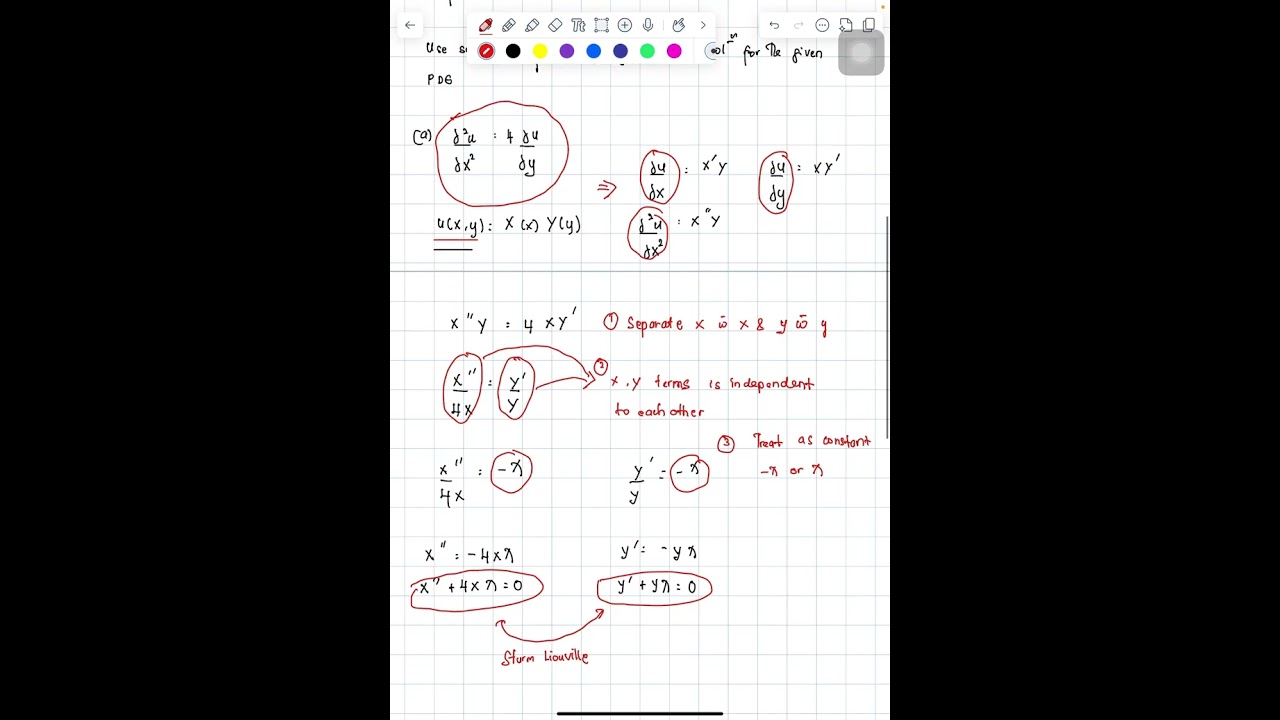 Use
solⁿ for the given
PDE
(a) ∂²u/∂x² = 4 ∂u/∂y
⇒ ∂u/∂x = X'Y ∂u/∂y = XY'
u(x,y) = X(x) Y(y)
∂²u/∂x² = X''Y
X''Y = 4 XY' ① Separate x w̄ x & y w̄ y
X''/4X = Y'/Y ② x, y terms is independent
to each other
③ Treat as constant
-λ or λ
X''/4X = -λ Y'/Y = -λ
X'' = -4Xλ Y' = -Yλ
X'' + 4Xλ = 0 Y' + Yλ = 0
Sturm Liouville